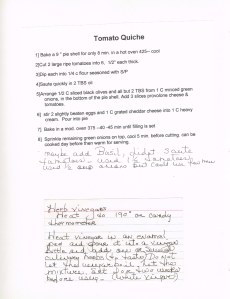 Tomato Quiche
1] Bake a 9 " pie shell for only 8 min. in a hot oven 425-- cool
2]Cut 2 large ripe tomatoes into 6, 1/2" each thick.
3]Dip each into 1/4 c flour seasoned with S/P
4]Saute quickly in 2 TBS oil
5]Arrange 1/2 C sliced black olives and all but 2 TBS from 1 C minced green
onions, in the bottom of the pie shell. Add 3 slices provolone cheese &
tomatoes.
6] stir 2 slightly beaten eggs and 1 C grated cheddar cheese into 1 C heavy
cream. Pour into pie
7] Bake in a mod. oven 375 --40--45 min until filling is set
8] Sprinkle remaining green onions on top, cool 5 min. before cutting. can be
cooked day before then warm for serving.
maybe add Basil, didn't saute
tomatoes. used 1/2
Herb Vinegars
Heat to 190° on candy
thermometer
Heat vinegar in an enamel
pan and pour it into a vinegar
bottle and add one or several
culinary herbs to taste. Do not
let the vinegar boil. Let the
mixture set for two weeks
before using. (White vinegar)